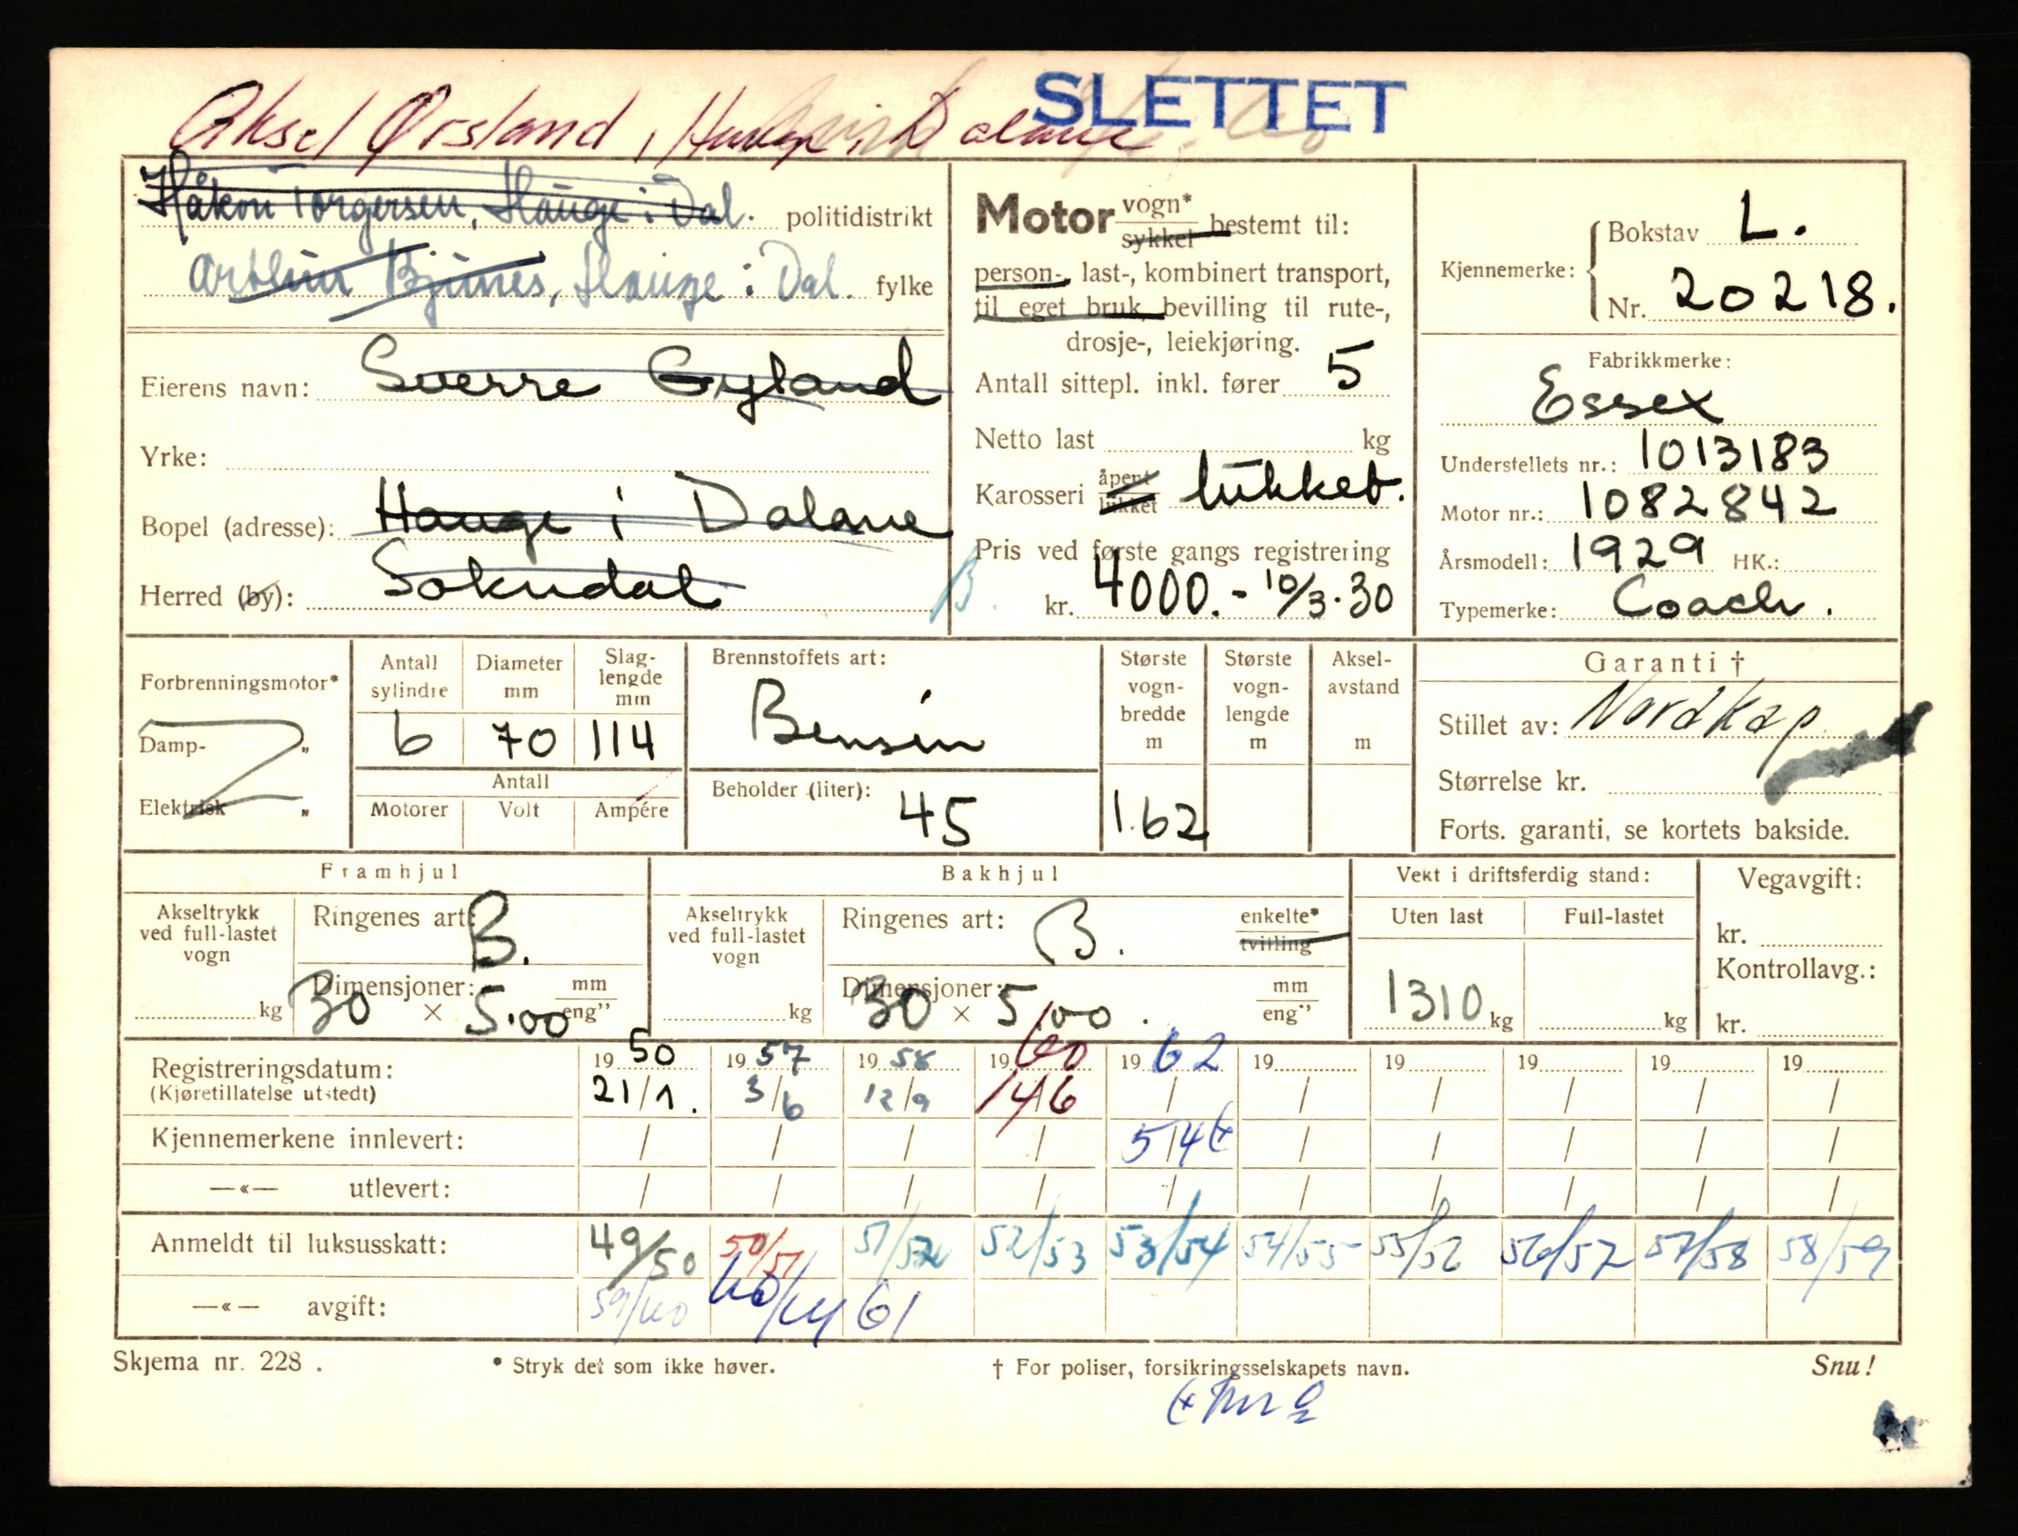 SLETTET
Aksel Ørsland, Hauge i Dalane
Håkon Torgersen, Hauge i Dal. politidistrikt
Arthur Bjunes, Hauge i Dal. fylke
Eierens navn: Sverre Gyland
Yrke:
Bopel (adresse): Hauge i Dalane
Herred (by): Sokndal
B.
Motor vogn* sykkel bestemt til:
person-, last-, kombinert transport,
til eget bruk, bevilling til rute-,
drosje-, leiekjøring.
Antall sittepl. inkl. fører 5
Netto last kg
Karosseri åpent lukket lukket.
Pris ved første gangs registrering
kr. 4000.- 10/3.30
Kjennemerke: Bokstav L.
Nr. 20218.
Fabrikkmerke:
Essex
Understellets nr.: 1013183
Motor nr.: 1082842
Årsmodell: 1929 HK.:
Typemerke: Coach.
Forbrenningsmotor*
Damp- „
Elektrisk „
Antall sylindre 6
Diameter mm 70
Slag-lengde mm 114
Antall
Motorer Volt Ampére
Brennstoffets art:
Bensin
Beholder (liter):
45
Største vogn-bredde m
1.62
Største vogn-lengde m
Aksel-avstand m
Garanti †
Stillet av: Nordkap
Størrelse kr.
Forts. garanti, se kortets bakside.
Framhjul
Akseltrykk ved full-lastet vogn
kg
Ringenes art B.
Dimensjoner: mm
30 × 5.00 eng"
Bakhjul
Akseltrykk ved full-lastet vogn
kg
Ringenes art: B. enkelte* tvilling
Dimensjoner: mm
30 × 5.00. eng"
Vekt i driftsferdig stand:
Uten last Full-lastet
1310 kg kg
Vegavgift:
kr.
Kontrollavg.:
kr.
Registreringsdatum: 19 50 19 57 19 58 19 60 19 62 19 19 19 19 19
(Kjøretillatelse utstedt) 21/1. 3/6 12/9 14/6 / / / / / /
Kjennemerkene innlevert: / / / / 5/4 / / / / /
—«— utlevert: / / / / / / / / / /
Anmeldt til luksusskatt: 49/50 50/51 51/52 52/53 53/54 54/55 55/56 56/57 57/58 58/59
—«— avgift: 59/60 60/61 61
Skjema nr. 228.
* Stryk det som ikke høver.
† For poliser, forsikringsselskapets navn.
Snu!